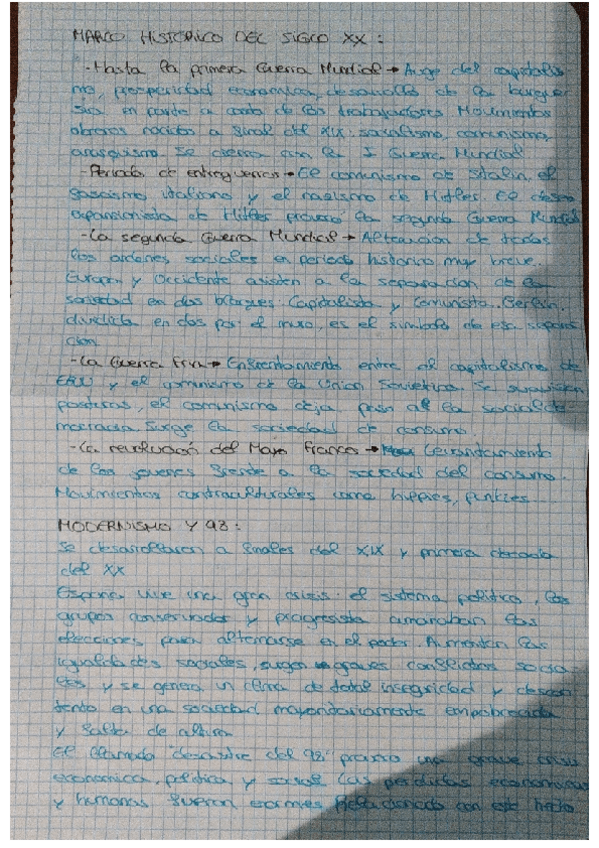 MARCO HISTÓRICO DEL SIGLO XX:
-Hasta la primera Guerra Mundial→ Auge del capitalis
mo, prosperidad economica, desarrollo de la burgue
sia en parte a costa de los trabajadores Movimientos
obreros nacidos a final del XIX: socialismo, comunismo,
anarquismo. Se cierra con la I Guerra Mundial
-Periodo de entreguerras→ El comunismo de Stalin, el
fascismo italiano y el nazismo de Hitler. El deseo
expansionista de Hitler provocó la segunda Guerra Mundial
-La segunda Guerra Mundial→ Alteración de todos
los ordenes sociales en periodo historico muy breve.
Europa y Occidente asisten a la separacion de la
sociedad en dos bloques: Capitalista y Comunista. Berlin,
dividida en dos por el muro, es el simbolo de esa separa
cion
-La Guerra Fria→ Enfrentamiento entre el capitalismo de
EEUU y el comunismo de la Union Sovietica. Se suavizan
posturas, el comunismo deja paso al la socialde-
mocracia Surge la sociedad de consumo.
-La revolución del Mayo Frances→ Levantamiento
de los jovenes frente a la sociedad del consumo.
Movimientos contraculturales como hippies, punkies...
MODERNISMO Y 98:
Se desarrollaron a finales del XIX y primera decada
del XX
España vive una gran crisis: el sistema politico, los
grupos conservador y progresista amanaban las
elecciones para alternarse en el poder. Aumentan las
igualdades sociales, surgen graves conflictos socia
les y se genera un clima de total inseguridad y descon
tento en una sociedad mayoritariamente empobrecida
y falta de
El llamado "desastre del 98" una grave crisis
economica, politica y social Las perdidas economicas
y humanas fueron enormes Relacionado con este hecho